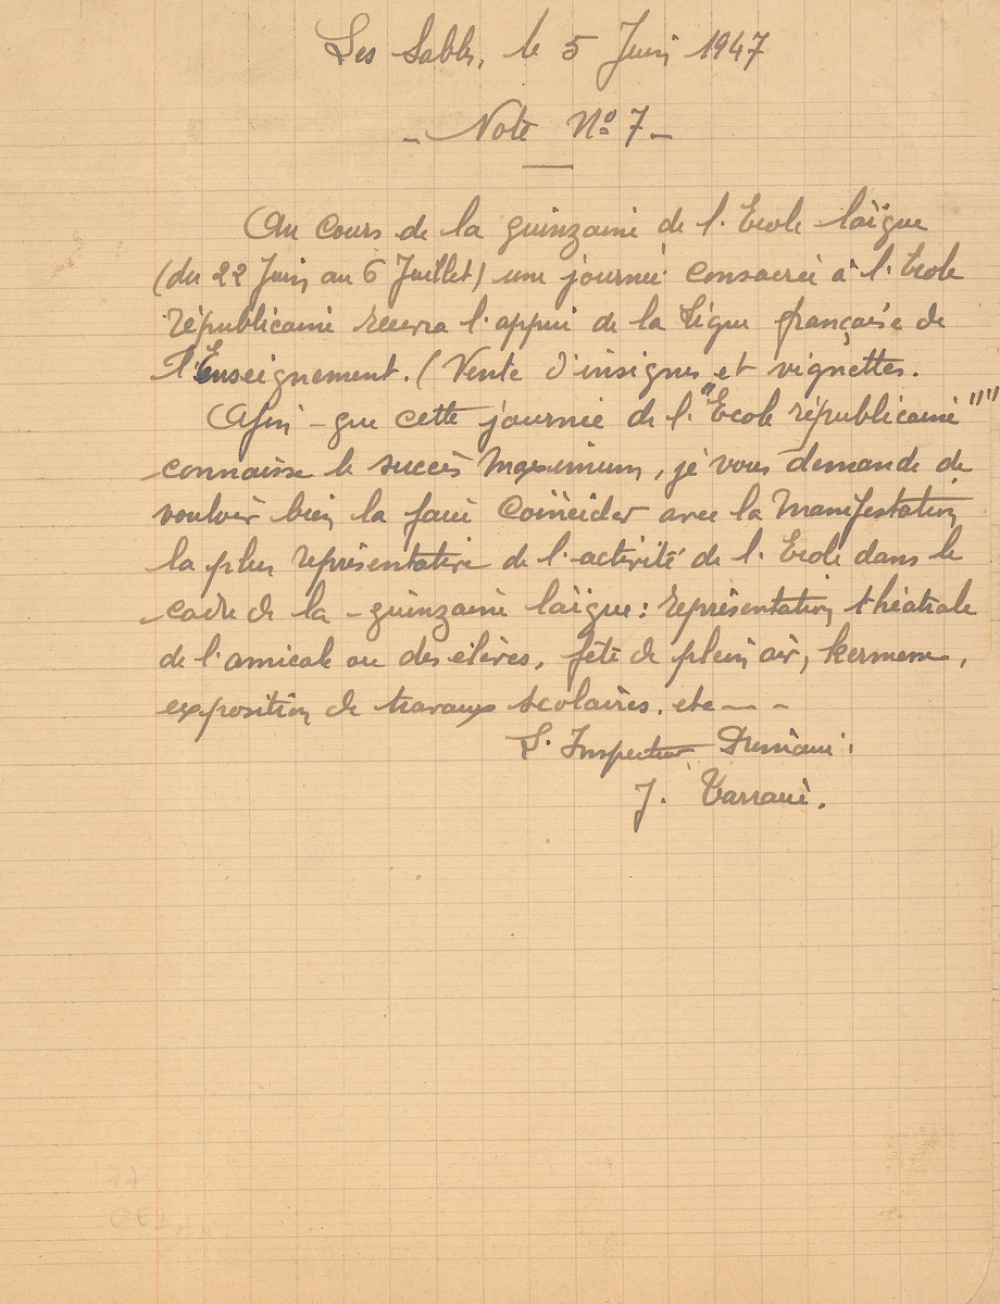 Les Sables, le 5 Juin 1947
- Note Nº 7 -
Au cours de la quinzaine de l'Ecole laïque
(du 22 Juin au 6 Juillet) une journée consacrée à l'Ecole
républicaine recevra l'appui de la Ligue française de
l'Enseignement. (Vente d'insignes et vignettes.
Afin que cette journée de l'"Ecole républicaine""
connaisse le succès maximum, je vous demande de
vouloir bien la faire coïncider avec la manifestation
la plus représentative de l'activité de l'Ecole dans le
cadre de la quinzaine laïque : représentation théâtrale
de l'amicale ou des élèves, fête de plein air, kermesse,
exposition de travaux scolaires. etc - - -
L'Inspecteur Primaire :
J.